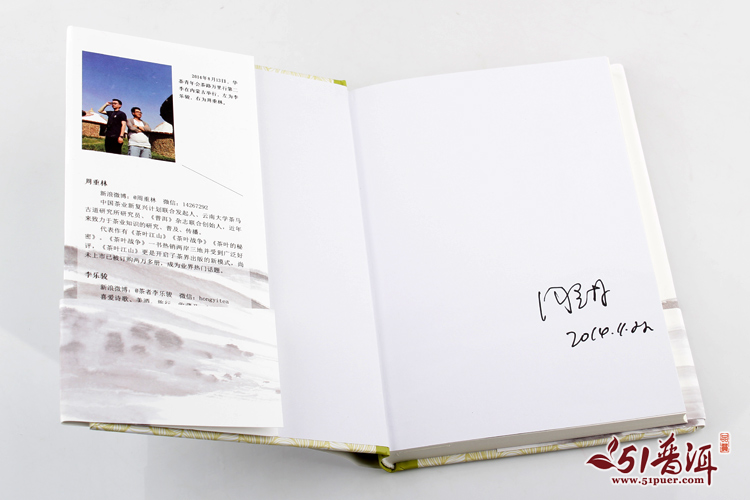 2014年8月13日,华
茶青年会茶路万里行第二
季在内蒙古举行。左为李
乐骏,右为周重林。
周重林
新浪微博:@周重林 微信:14267292
中国茶业新复兴计划联合发起人,云南大学茶马
古道研究所研究员,《普洱》杂志联合创始人,近年
来致力于茶业知识的研究、普及、传播。
代表作有《茶叶江山》《茶叶战争》《茶叶的秘
密》。《茶叶战争》一书热销两岸三地并受到广泛好
评,《茶叶江山》更是开启了茶界出版的新模式,尚
未上市已被订购两万多册,成为业界热门话题。
李乐骏
新浪微博:@茶者李乐骏 微信:hongyitea
喜爱诗歌、美酒、旅行
2014.11.22
51普洱
www.51puer.com